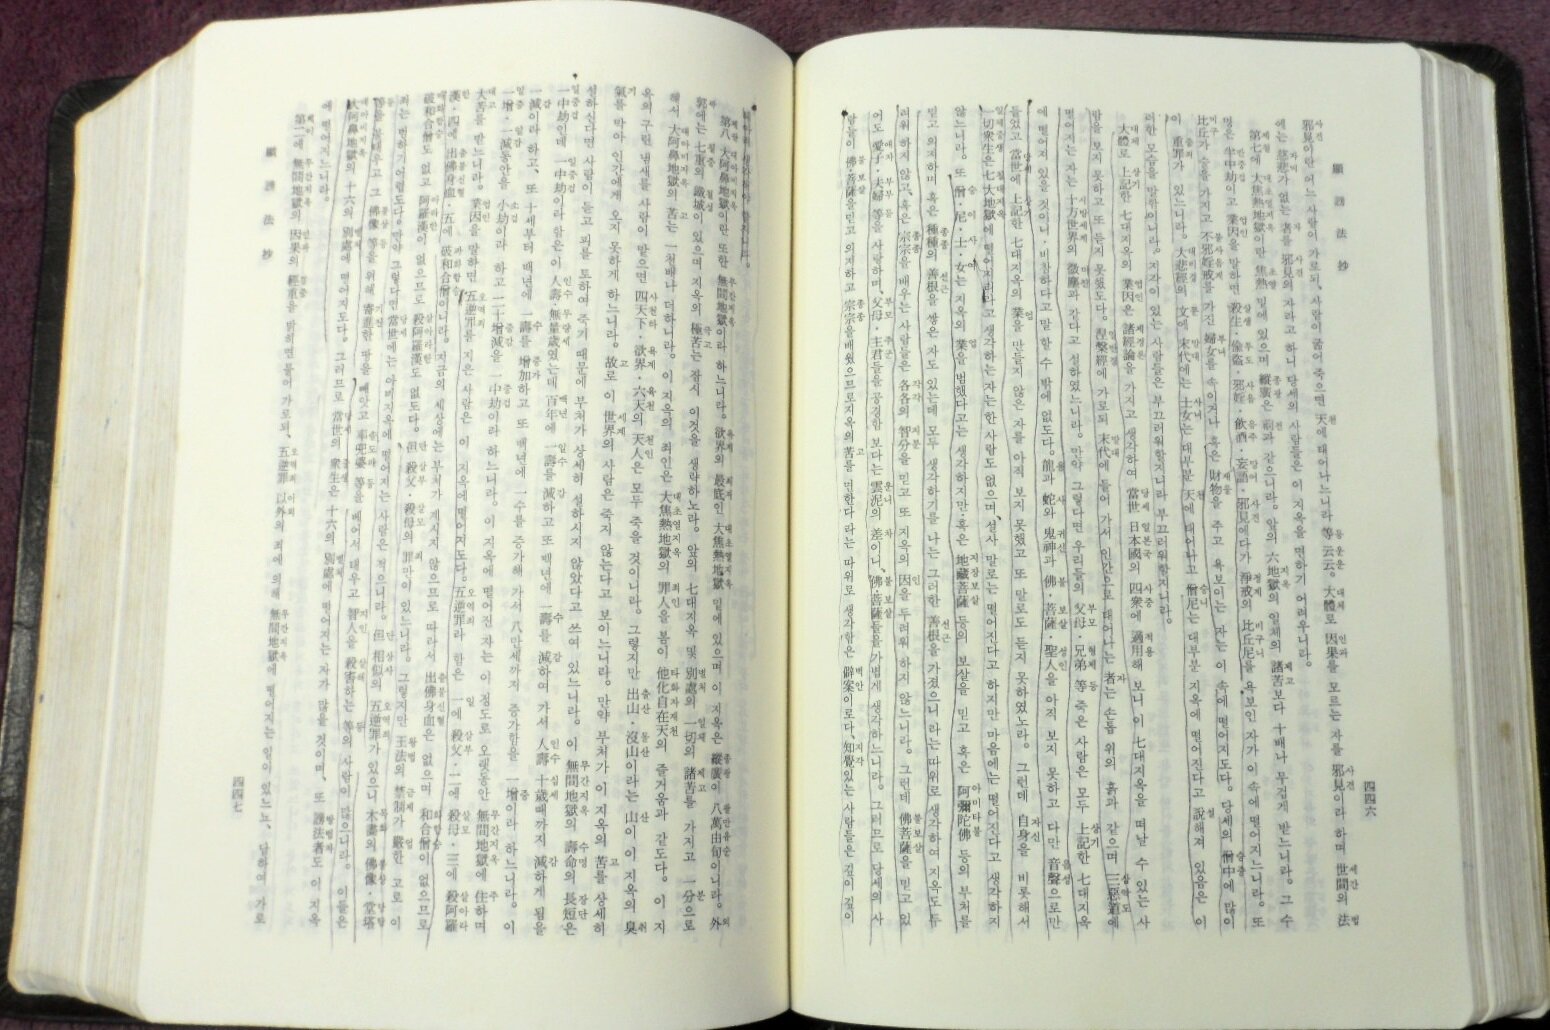 顯謗法抄
四四六
邪見이란 어느 사람이 가로되, 사람이 굶어 죽으면 天에 태어나느니라 等云云. 大體로 因果를 모르는 자를 邪見이라 하며 世間의 法
에는 慈悲가 없는 者를 邪見의 자라고 하니 당세의 사람들은 이 지옥을 면하기 어려우니라.
第七에 大焦熱地獄이란 焦熱 밑에 있으며 縱廣은 前과 같으니라. 앞의 六地獄의 일체의 諸苦보다 十배나 무겁게 받느니라. 그 수
명은 半中劫이고 業因을 말하면 殺生·偸盜·邪婬·飮酒·妄語·邪見에다가 淨戒의 比丘尼를 욕보인 자가 이 속에 떨어지느니라. 또
比丘가 술을 가지고 不邪婬戒를 가진 婦女를 속이거나 혹은 財物을 주고 욕보이는 자는 이 속에 떨어지도다. 당세의 僧中에 많이
이 重罪가 있느니라. 大悲經의 文에 末代에는 士女는 대부분 天에 태어나고 僧尼는 대부분 지옥에 떨어진다고 說해져 있음은 이
러한 모습을 말함이니라. 지각이 있는 사람들은 부끄러워할지니라 부끄러워할지니라.
大體로 上記한 七대지옥의 業因은 諸經論을 가지고 생각하여 當世 日本國의 四衆에 適用해 보니 이 七대지옥을 떠날 수 있는 사
람을 보지 못하고 또 듣지 못했도다. 涅槃經에 가로되 末代에 들어가서 인간으로 태어나는 者는 손톱 위의 흙과 같으며 三惡道에
떨어지는 자는 十方世界의 微塵과 같다고 설하였느니라. 만약 그렇다면 우리들의 父母·兄弟 등 죽은 사람은 모두 上記한 七대지옥
에 떨어져 있을 것이니·비참하다고 말할 수 밖에 없도다. 龍과 蛇와 鬼神과 佛·菩薩·聖人을 아직 보지 못하고 다만 音聲으로만
들었고 當世에 上記한 七대지옥의 業을 만들지 않은 자를 아직 보지 못했고 또 말로도 듣지 못하였노라. 그런데 自身을 비롯해서
一切衆生은 七大地獄에 떨어지리라고 생각하는 자는 한 사람도 없으며, 설사 말로는 떨어진다고 하지만 마음에는 떨어진다고 생각하지
않느니라. 또 僧·尼·士·女는 지옥의 業을 범했다고는 생각하지만 혹은 地藏菩薩 등의 보살을 믿고 혹은 阿彌陀佛 등의 부처를
믿고 의지하며 혹은 種種의 善根을 쌓은 자도 있는데 모두 생각하기를 나는 그러한 善根을 가졌으니라는 따위로 생각하여 지옥도 두
려워 하지 않고·혹은 宗宗을 배우는 사람들은 各各의 智分을 믿고 또 지옥의 因을 두려워 하지 않느니라. 그런데 佛菩薩을 믿고 있
어도 愛子·夫婦 等을 사랑하며, 父母·主君들을 공경한 보다는 雲泥의 差이니, 佛·菩薩들을 가볍게 생각하느니라. 그러므로 당세의 사
람들이 佛·菩薩을 믿고 의지하고 宗宗을 배웠으므로 지옥의 苦를 면한다 라는 따위로 생각함은 僻案이로다. 知覺있는 사람들은 깊이 깊이
顯謗法抄
四四七
第八 大阿鼻地獄이란 또한 無間地獄이라 하느니라. 欲界의 最底인 大焦熱地獄 밑에 있으며 이 지옥은 縱廣이 八萬由旬이니라. 外
郭에는 七重의 鐵城이 있으며 지옥의 極苦는 잠시 이것을 생략하노라. 앞의 七대지옥 및 別處의 一切의 諸苦를 가지고 一分으로
해서 大阿鼻地獄의 苦는 一천배나 더하니라. 이 지옥의 죄인은 大焦熱地獄의 罪人을 봄이 他化自在天의 즐거움과 같도다. 이 지
옥의 구린 냄새를 사람이 맡으면 四天下·欲界·六天의 天人은 모두 죽을 것이니라. 그렇지만 出山·沒山이라는 山이 이 지옥의 臭
氣를 막아 인간에게 오지 못하게 하느니라. 故로 이 世界의 사람은 죽지 않는다고 보이느니라. 만약 부처가 이 지옥의 苦를 상세히
설하신다면 사람이 듣고 피를 토하여 죽기 때문에 부처가 상세히 설하시지 않았다고 쓰여 있느니라. 이 無間地獄의 壽命의 長短은
一中劫인데 一中劫이라 함은 이 人壽 無量歲였는데 百年에 一壽를 減하고 또 백년에 一壽를 減하여 가서 人壽 十歲때까지 減하게 됨을
一減이라 하고, 또 十세부터 백년에 一壽를 增加하고 또 백년에 一수를 증가해 가서 八만세까지 증가함을 一增이라 하느니라. 이
一增·一減동안을 小劫이라 하고 二十增減을 一中劫이라 하느니라. 이 지옥에 떨어진 자는 이 정도로 오랫동안 無間地獄에 住하며
大苦를 받느니라. 業因을 말하면 五逆罪를 지은 사람은 이 지옥에 떨어지도다. 五逆罪라 함은 一에 殺父·二에 殺母·三에 殺阿羅
漢·四에 出佛身血·五에 破和合僧이니라. 지금의 세상에는 부처가 계시지 않으므로 따라서 出佛身血은 없으며 和合僧이 없으므로
破和合僧도 없고 阿羅漢이 없으므로 殺阿羅漢도 없도다. 但 殺父·殺母의 罪만이 있느니라. 그렇지만 王法의 禁制가 嚴한 고로 이
죄는 범하기 어렵도다. 만약 그렇다면 當世에는 아비지옥에 떨어지는 사람은 적으니라. 但 相似의 五逆罪가 있으니 木畵의 佛像·堂塔
等을 불태우고 그 佛像 等을 위해 寄進한 땅을 빼앗고 率兜婆 等을 베어서 태우고 智人을 殺害하는 等의 사람이 많으니라. 이들은
大阿鼻地獄의 十六의 別處에 떨어지도다. 그러므로 當世의 衆生은 十六의 別處에 떨어지는 자가 많을 것이며, 또 謗法者도 이 지옥
에 떨어지느니라.
第二에 無間地獄의 因果의 輕重을 밝히면 물어 가로되, 五逆罪 以外의 죄에 의해 無間地獄에 떨어지는 일이 있느뇨, 답하여 가로